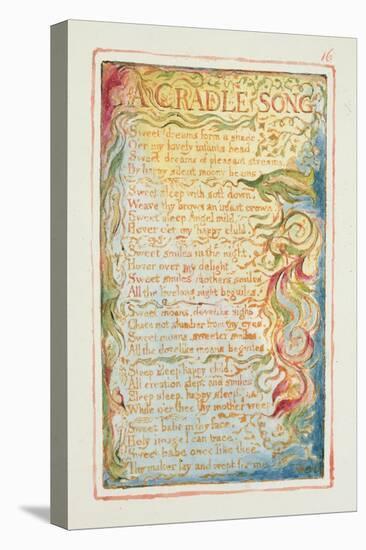 16
A CRADLE SONG
Sweet dreams form a shade
O'er my lovely infants head
Sweet dreams of pleasant streams
By happy silent moony beams
Sweet sleep with soft down
Weave thy brows an infant crown
Sweet sleep Angel mild
Hover o'er my happy child
Sweet smiles in the night
Hover over my delight
Sweet smiles mothers smiles
All the livelong night beguiles
Sweet moans, dovelike sighs
Chase not slumber from thy eyes
Sweet moans, sweeter smiles
All the dovelike moans beguiles
Sleep sleep happy child
All creation slept and smil'd
Sleep sleep, happy sleep
While o'er thee thy mother weep
Sweet babe in thy face
Holy image I can trace
Sweet babe once like thee
Thy maker lay and wept for me